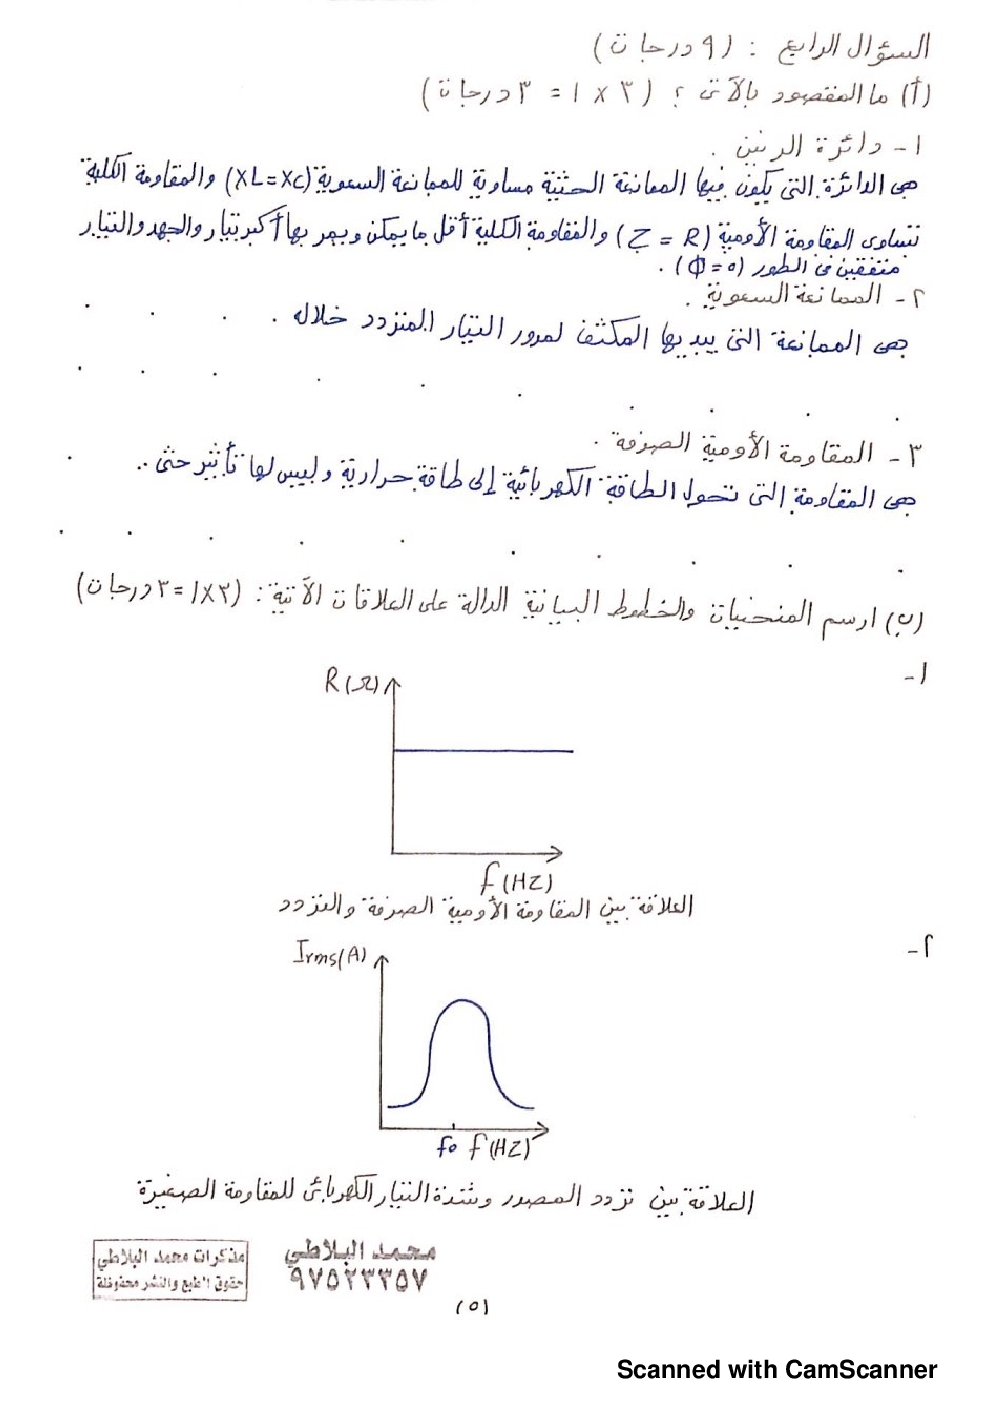 السؤال الرابع : (٩ درجات)
(أ) ما المقصود بالآتي ؟ (٣ × ١ = ٣ درجات)
١- دائرة الرنين .
هي الدائرة التي يكون فيها الممانعة الحثية مساوية للممانعة السعوية (XL=Xc) والمقاومة الكلية
تساوي المقاومة الأومية (Z = R) والمقاومة الكلية أقل ما يمكن ويمر بها أكبر تيار والجهد والتيار
متفقين في الطور (Φ=٥) .
٢- الممانعة السعوية .
هي الممانعة التي يبديها المكثف لمرور التيار المتردد خلاله .
٣- المقاومة الأومية الصرفة .
هي المقاومة التي تحول الطاقة الكهربائية إلى طاقة حرارية وليس لها تأثير حثي ..
(ب) ارسم المنحنيات والخطوط البيانية الدالة على العلاقات الآتية : (٣×١=٣ درجات)
١-
R(Ω)
f(HZ)
العلاقة بين المقاومة الأومية الصرفة والتردد
٢-
Irms(A)
fo f(HZ)
العلاقة بين تردد المصدر وشدة التيار الكهربائي للمقاومة الصغيرة
محمد البلاطي
٩٧٥٢٣٣٥٧
مذكرات محمد البلاطي
حقوق الطبع والنشر محفوظة
(٥)
Scanned with CamScanner